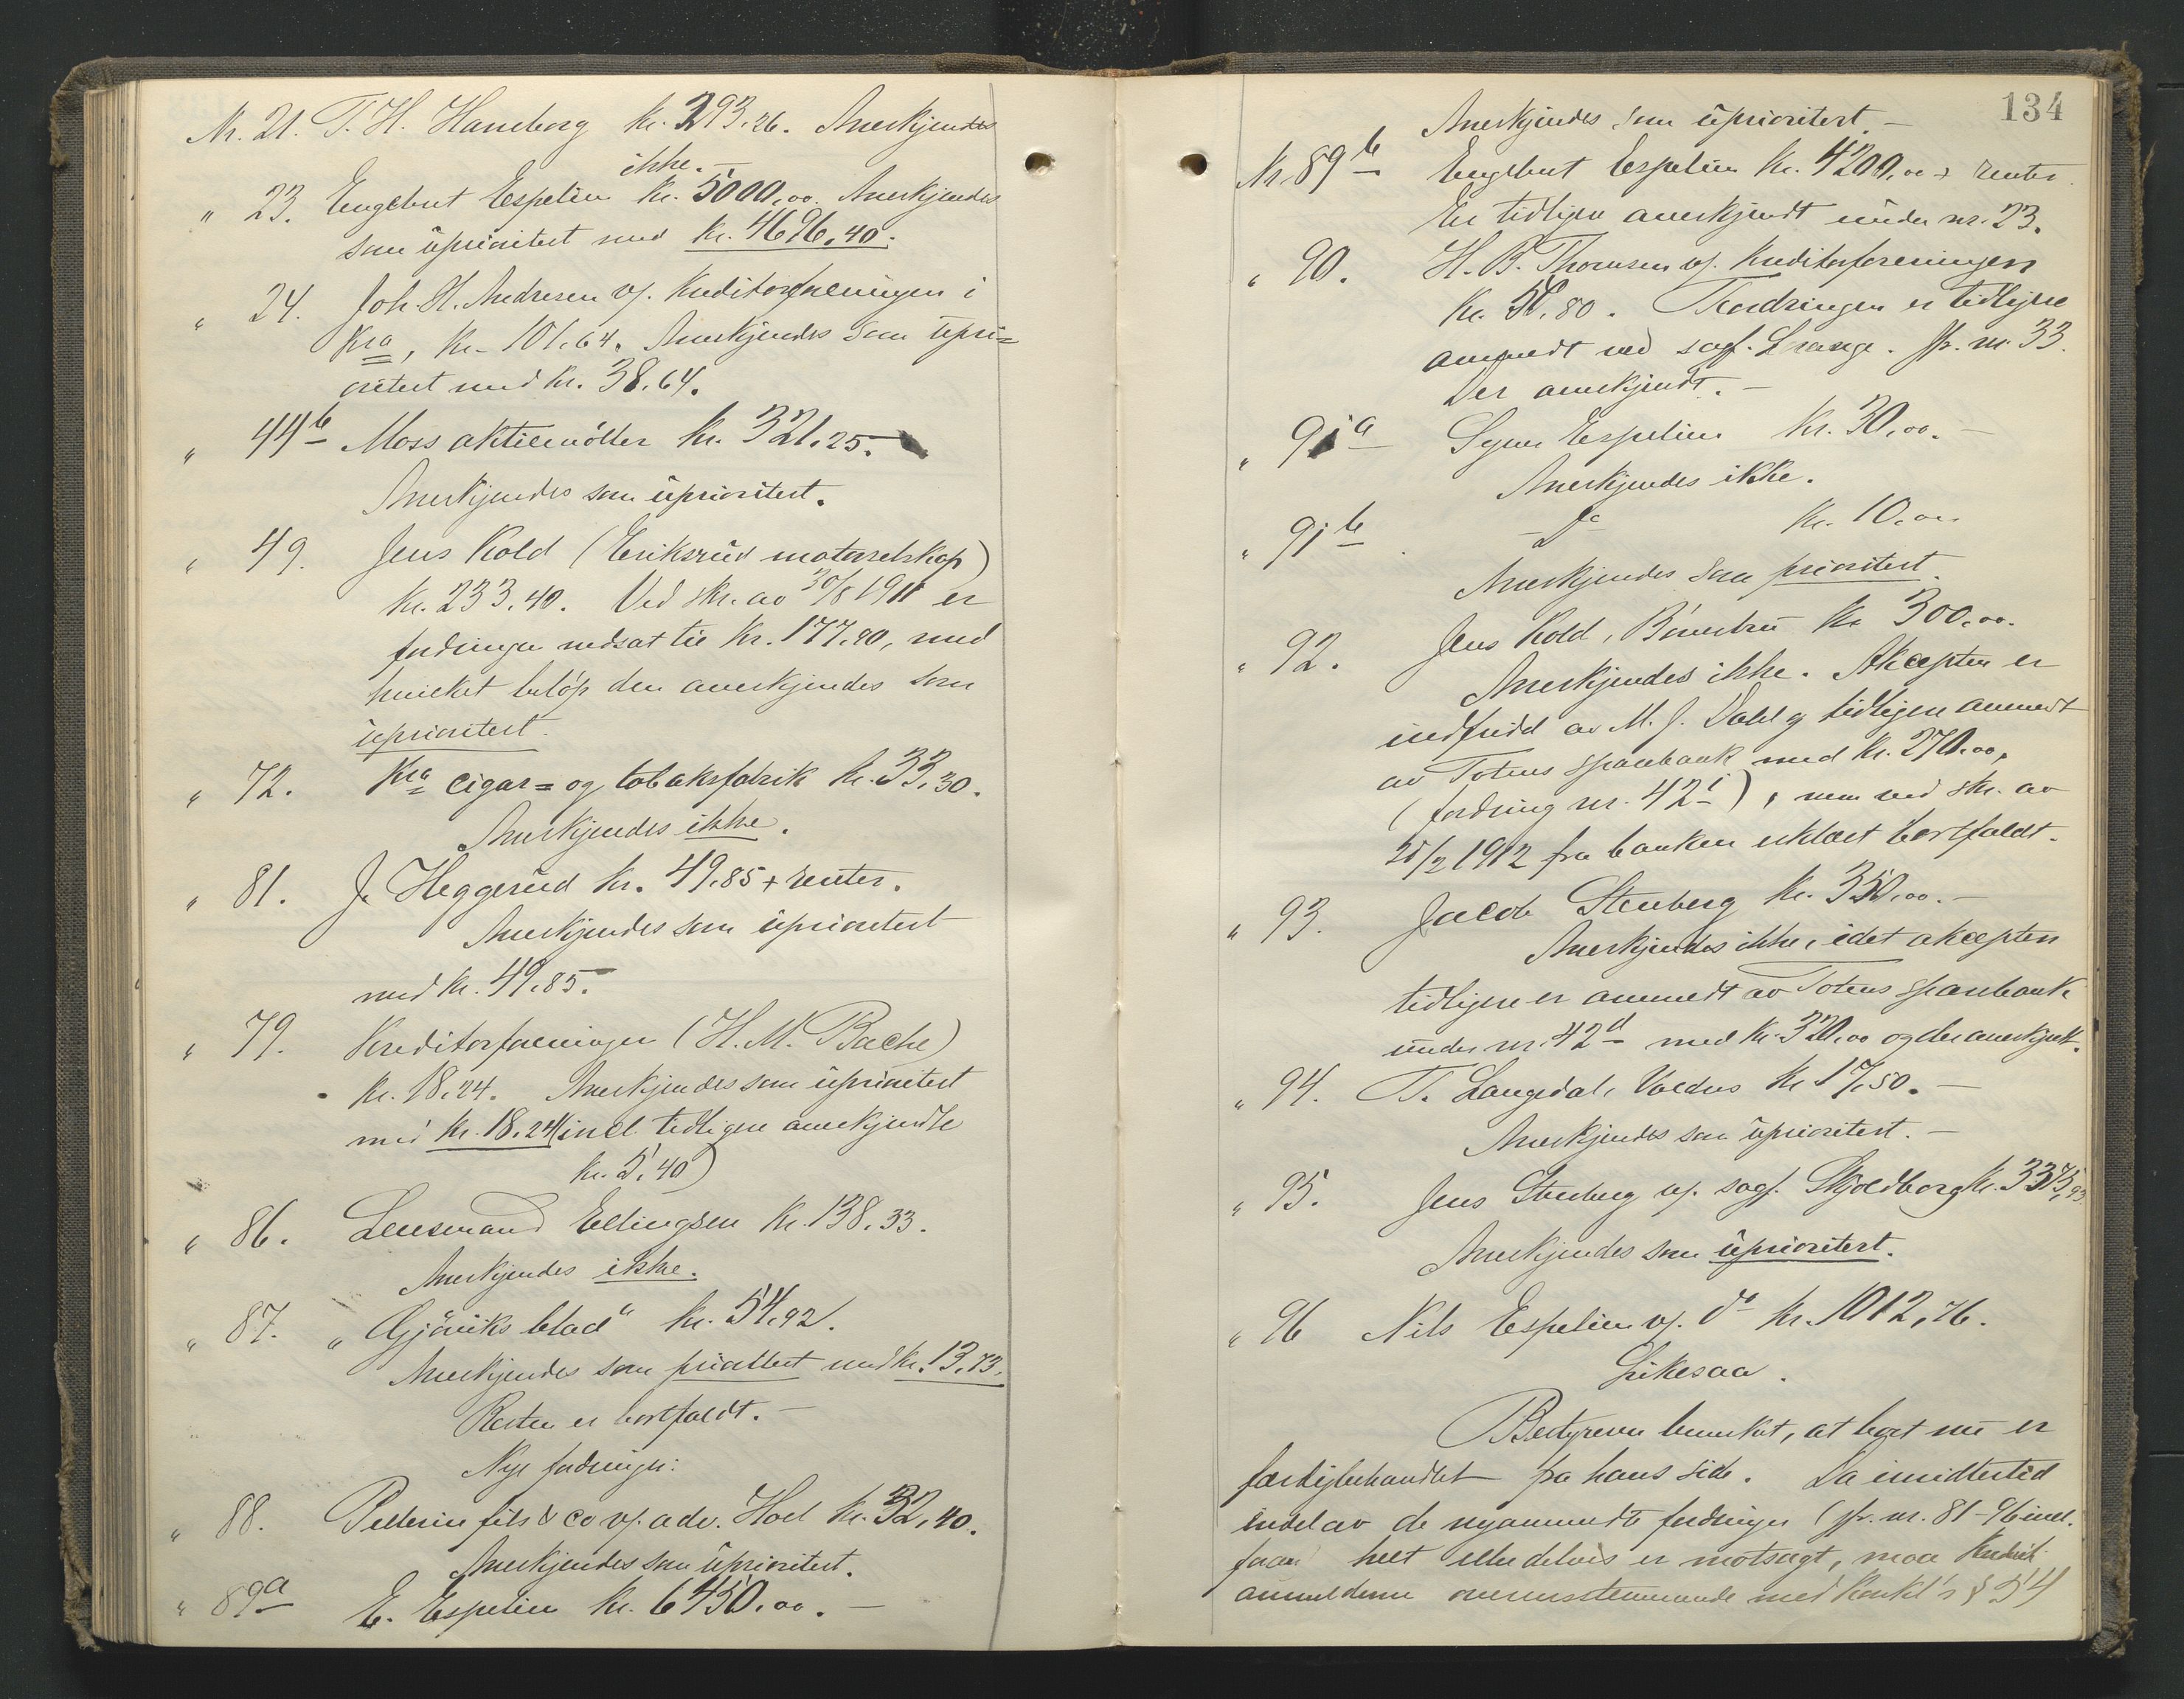 Nr. 21. T. H. Haneborg kr. 393.26. Anerkjendes
ikke. —
" 23. Engebret Espelien kr. 5000,00. Anerkjendes
som uprioritert med kr. 4696,40.
" 24. Joh. H. Andresen v/. Kreditorforeningen i
Kra, kr. 101.64. Anerkjendes som upri=
oritert med kr. 38.64.
" 44b Moss aktiemöller kr. 321.25.
Anerkjendes som uprioritert.
" 49. Jens Kold (Eriksrud motorselskap)
kr. 233.40. Ved skr. av 30/8 1911 er
fordringen nedsat til kr. 177.90, med
hvilket beløp den anerkjendes som
uprioritert.
" 72. Kra cigar= og tobaksfabrik kr. 33.30.
Anerkjendes ikke.
" 81. J. Heggerud kr. 49.85 + renter.
Anerkjendes som uprioritert
med kr. 49.85.
" 79. Kreditorforeningen (H. M. Bache)
kr. 18.24. Anerkjendes som uprioritert
med kr. 18.24 (incl. tidligere anerkjendte
kr. 5.40)
" 86. Lensmand Ellingsen kr. 138.33.
Anerkjendes ikke.
" 87. "Gjøviks blad" kr. 54.92.
Anerkjendes som prioritert med kr. 13.73.
Resten er bortfaldt. —
Nye fordringer:
" 88. Pellerin fils & co v/. adv. Hoel kr. 32,40.
Anerkjendes som uprioritert.
" 89a E. Espelien kr. 6450.00. —
134
Anerkjendes som uprioritert. —
Nr. 89b Engebret Espelien kr. 4200,00 + renter.
Er tidligere anerkjendt under nr. 23.
" 90. H. B. Thomsen v/. Kreditorforeningen
kr. 80. Fordringen er tidligere
anmeldt ved sagf. Lorange. Jfr. nr. 33.
Der anerkjendt. —
" 91a Syver Espelien kr. 30,00. —
Anerkjendes ikke.
" 91b — Do kr. 10.00
Anerkjendes som prioritert.
" 92. Jens Kold, Böverbru kr 300.00.
Anerkjendes ikke. Akcepten er
indfridd av M. J. Dahl og tidligere anmeldt
av Totens sparebank med kr. 270.00,
(fordring nr. 42i), men ved skr. av
/2 1912 fra banken erklært bortfaldt.
" 93. Jacob Stenberg kr. 350,00. —
Anerkjendes ikke, idet akcepten
tidligere er anmeldt av Totens sparebank
under nr. 42d med kr. 320.00 og der anerkjendt.
" 94. T. Langedal, Valdres kr 17,50. —
Anerkjendes som uprioritert. —
" 95. Jens Stenberg v/. sagf. Skjoldborg kr. 3375,93
Anerkjendes som uprioritert.
" 96 Nils Espelien v/. do kr. 1012,76.
Likesaa.
Bestyreren bemerket, at boet nu er
færdigbehandlet fra hans side. Da imidlertid
endel av de nyanmeldte fordringer (jfr. nr. 81-96 incl.
foran helt eller delvis er motsagt, maa
anmelderne overensstemmende med konkl's § 54